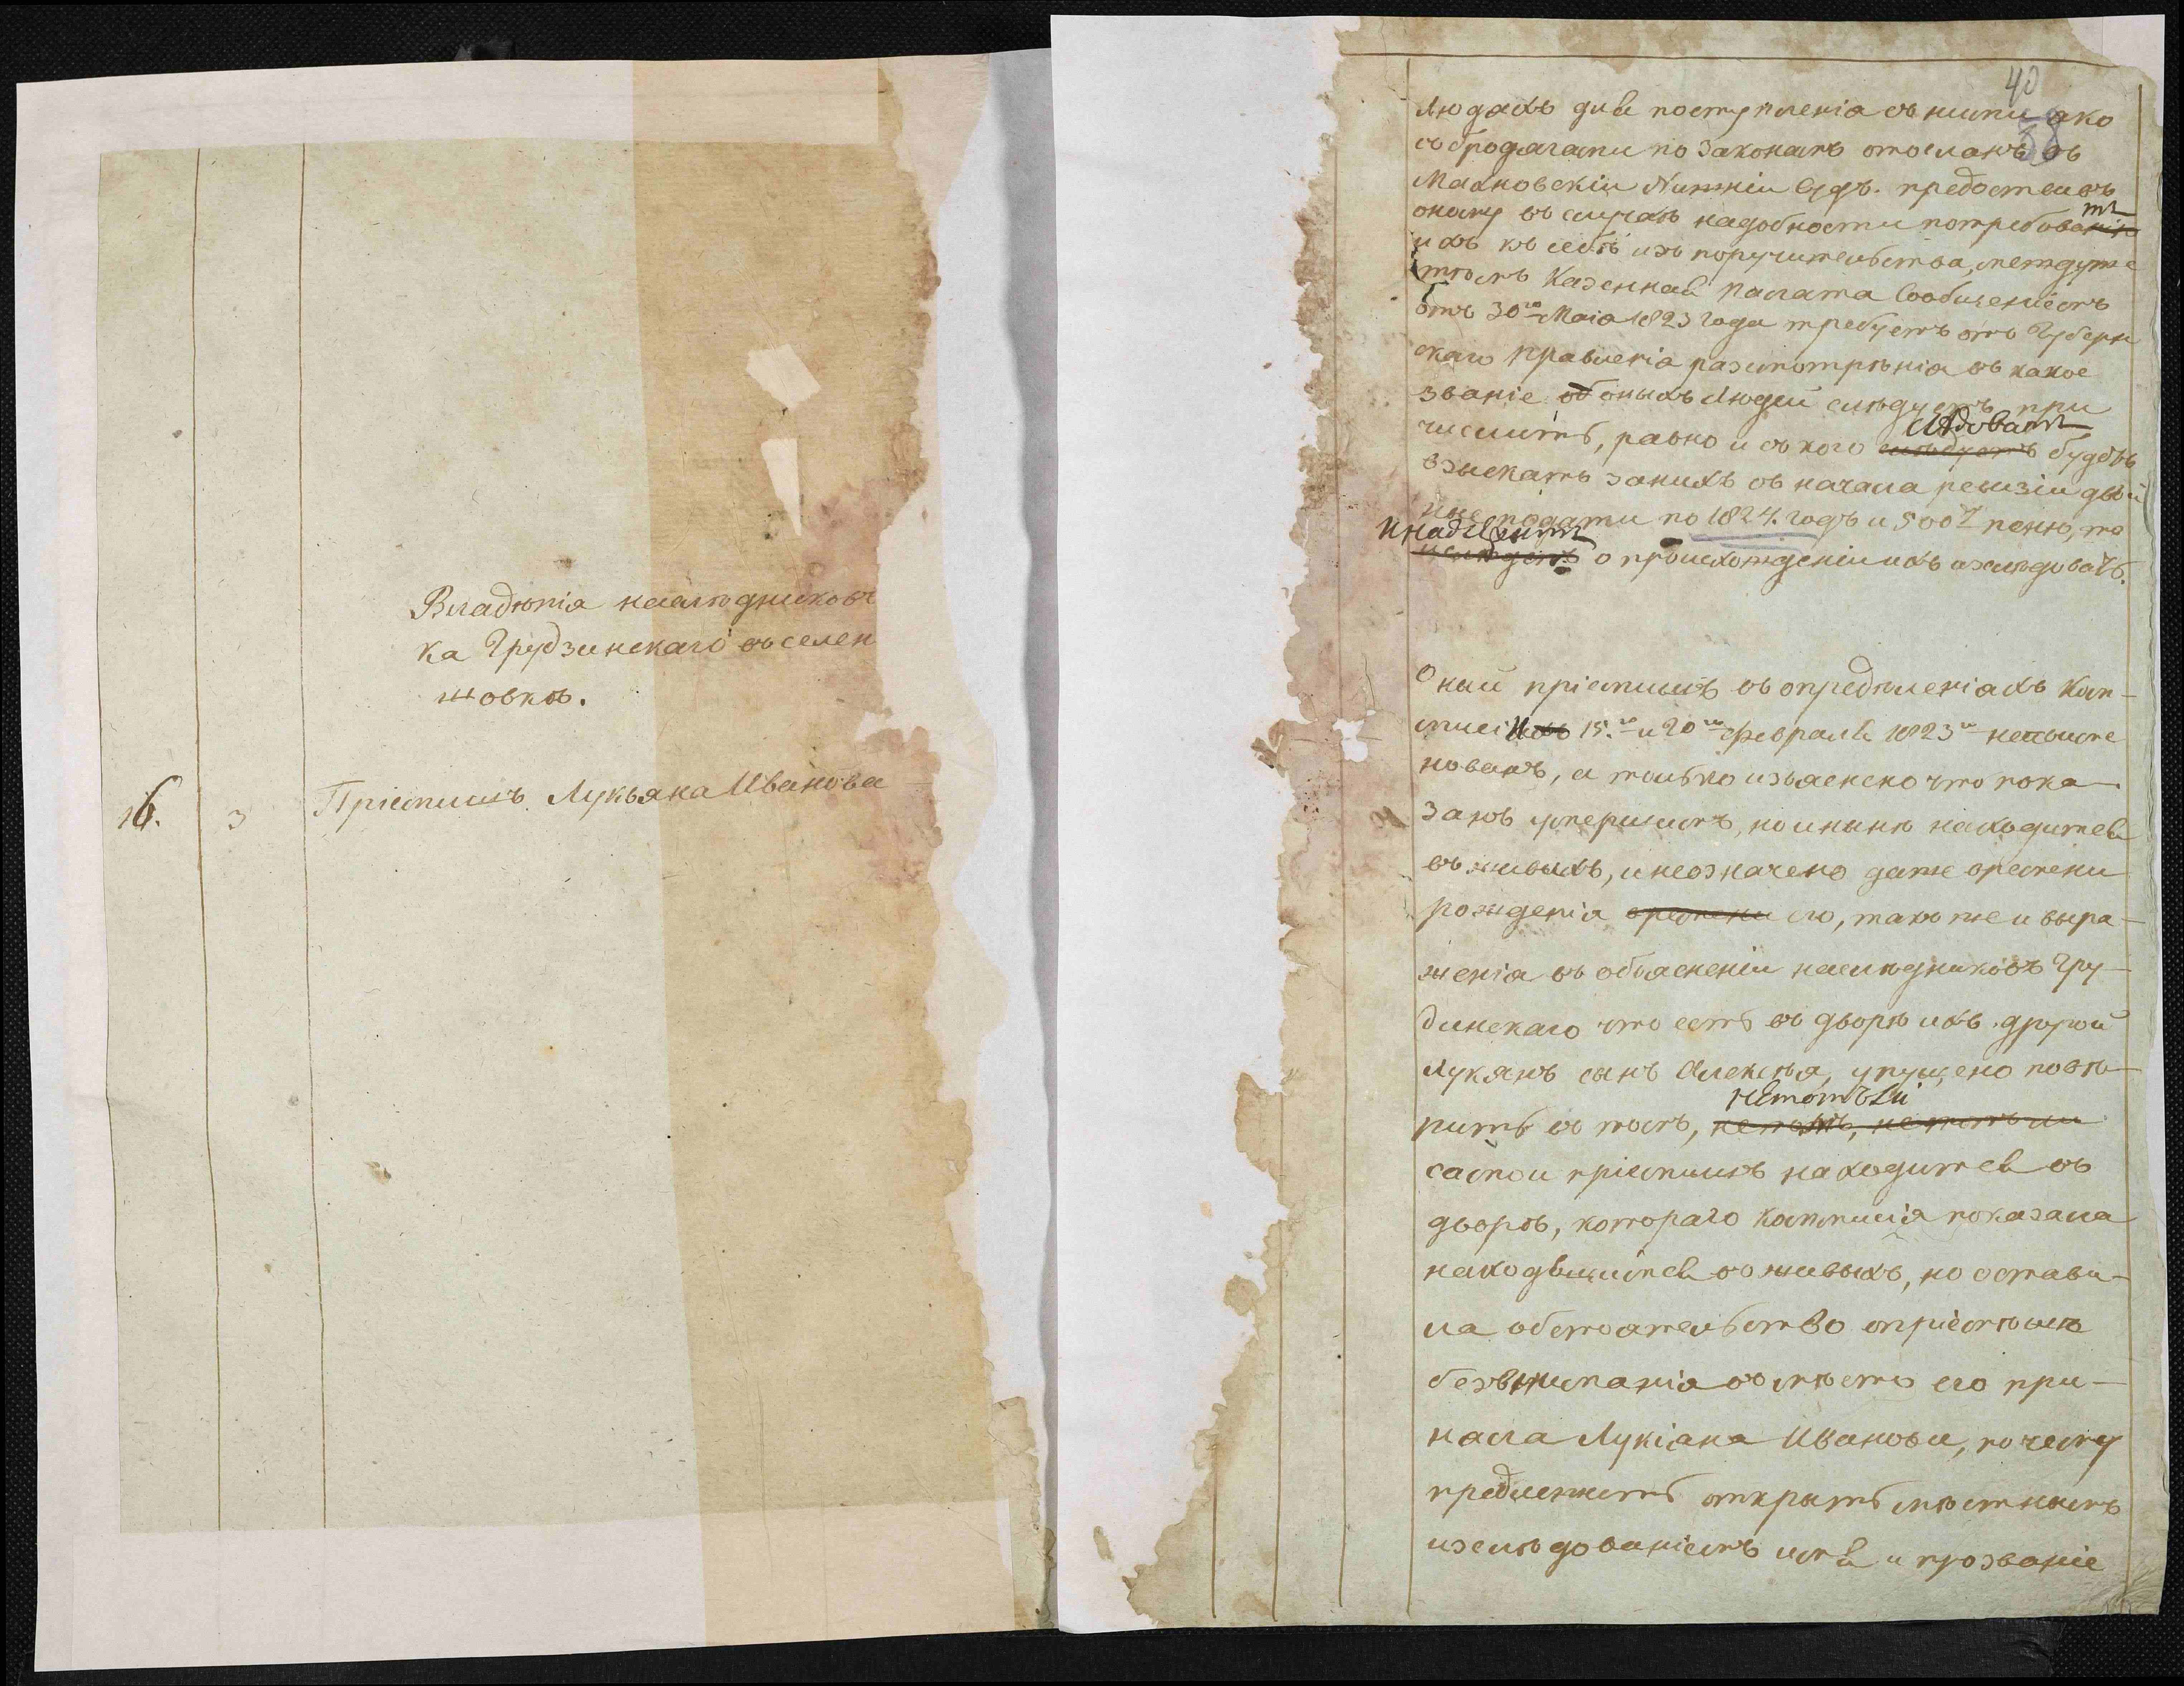 Владѣнія наслѣдниковъ
ка Грудзинскаго въ селен
шовкѣ.
16. 3 Пріемышъ Лукьяна Иванова
40
людахъ для поступленія съ ними яко
съ бродягами по законамъ отосланъ въ
Махновскій Нижній Судъ. предоставъ
оному въ случаѣ надобности потребова ть
ихъ къ себѣ изъ поручительства, между же
тѣмъ Казенная палата Сообщеніемъ
отъ 30го Маія 1823 года требуетъ отъ Губерн
скаго правленія разсмотрѣнія въ какое
званіе об оныхъ людей слѣдуетъ при
слѣдовать
числить, равно и съ кого слѣдуетъ будетъ
взыскать занихъ съ начала ревизіи двой
ныя подати по 1824. годъ и 500 пеню, то
и надлежитъ
о происхожденіи ихъ изслѣдовать.
Оный пріемышъ въ опредѣленіяхъ Ком-
мисіи 15.го и 20го февраля 1823го непоиме
нованъ, а только изъяснено что пока-
занъ умершимъ, но и нынѣ находится
въ живыхъ, и неозначено даже времени
рожденія времени его, также и выра-
женія въ объясненіи наслѣдниковъ Гру-
динскаго что есть въ дворѣ ихъ другой
Лукянъ сынъ Алексѣя, упущено повѣ-
нетотъ ли
рить въ томъ,
самой пріемышъ находится въ
дворѣ, котораго Коммисія показала
находящимся въ живыхъ, но остави-
ла обстоятельство опріемышѣ
безвниманія въ мѣсто его при-
няла Лукіана Иванова, по чему
предлежитъ открыть мѣстнымъ
изслѣдованіемъ имя и прозваніе